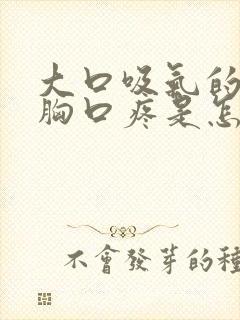 大口吸氣的
胸口疼是怎
不會發芽的種